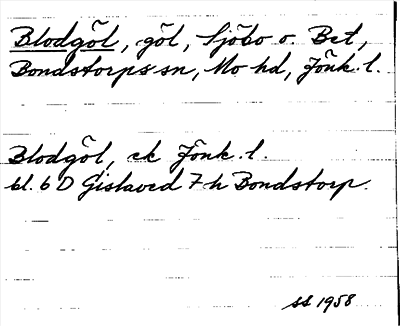 Blodgöl, göl, Sjöbo o. Bet,
Bondstorps sn, Mo hd, Jönk. l.
Blodgöl, ek Jönk. l.
bl. 6 D Gislaved 7 h Bondstorp.
SS 1958